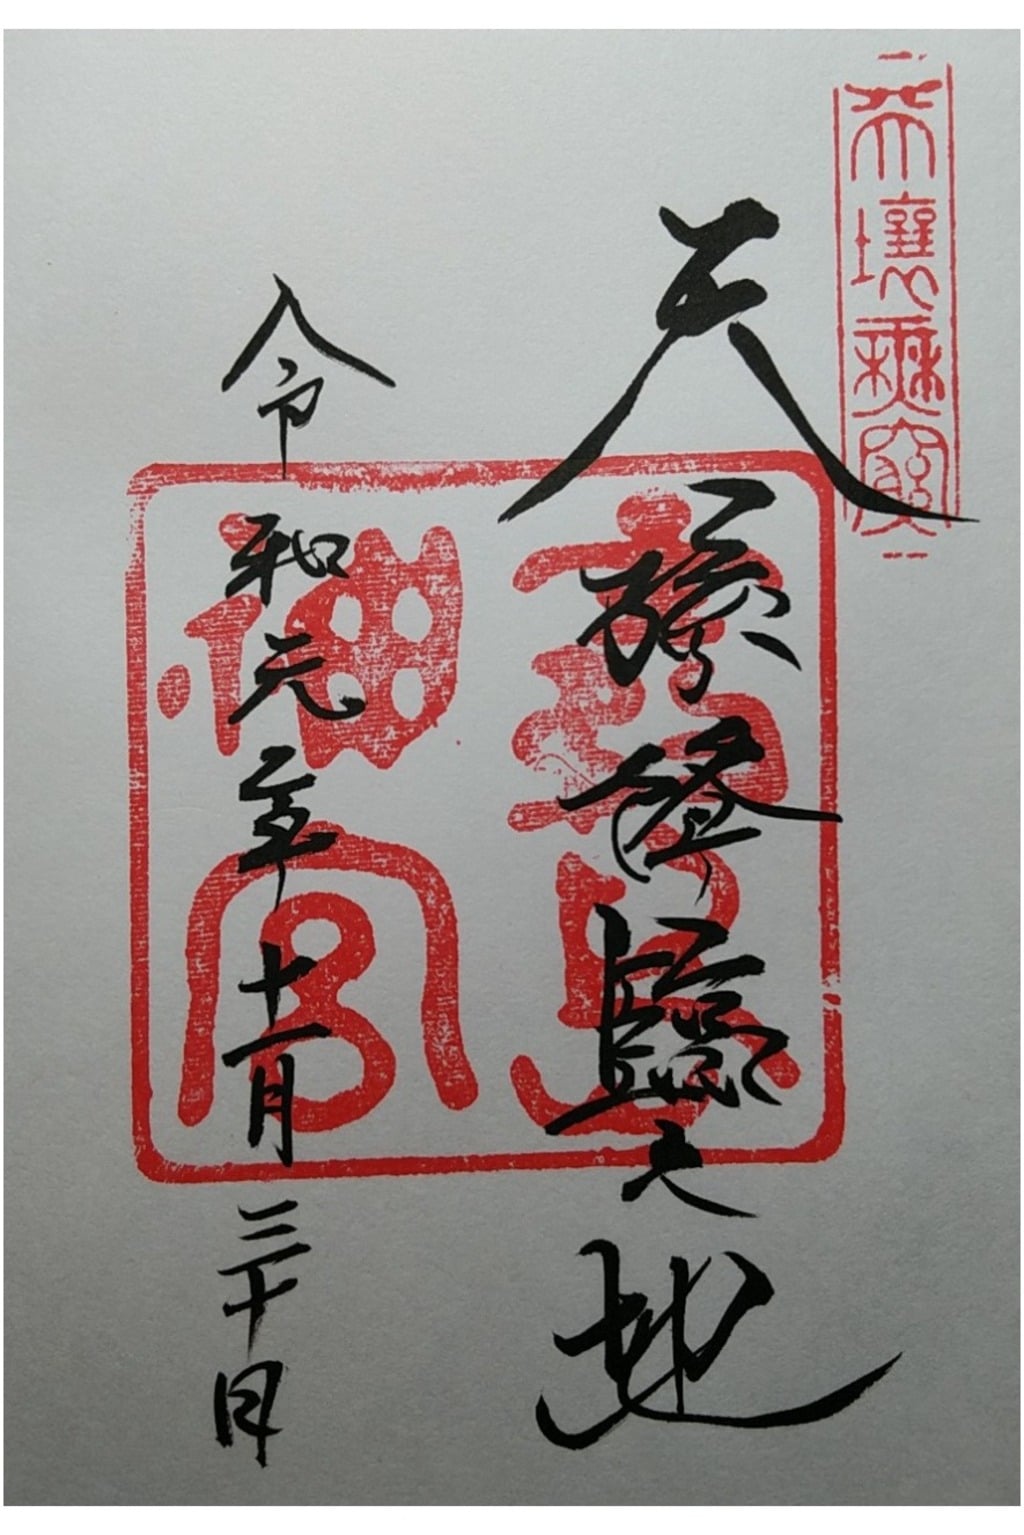 天壤無窮
天孫降臨之地
令和元年十一月三十日